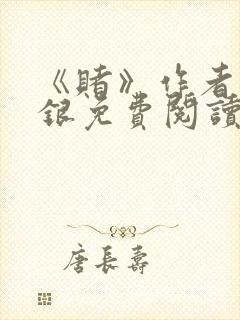 《賭》作者
銀免費閱讀
唐長壽